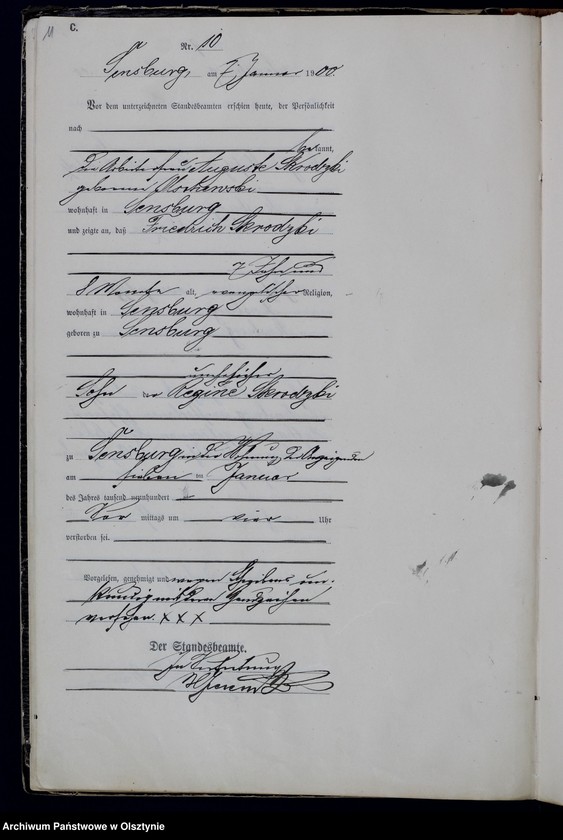 11
C.
Nr. 10
Sensburg, am 7. Januar 1900.
Vor dem unterzeichneten Standesbeamten erschien heute, der Persönlichkeit
nach
bekannt,
die Arbeiterfrau Auguste Skrodzki
geborene Olschewski
wohnhaft in Sensburg
und zeigte an, daß Friedrich Skrodzki
7 Jahre und
8 Monate alt, evangelischer Religion,
wohnhaft in Sensburg
geboren zu Sensburg
unehelicher
Sohn der Regine Skrodzki
zu Sensburg in der Wohnung der Anzeigenden
am sieben ten Januar
des Jahres tausend neunhundert
Vor mittags um vier Uhr
verstorben sei.
Vorgelesen, genehmigt und wegen Schreibens un-
kundig mit dem Handzeichen
versehen. XXX
Der Standesbeamte.
In Vertretung
Archiwum Państwowe w Olsztynie